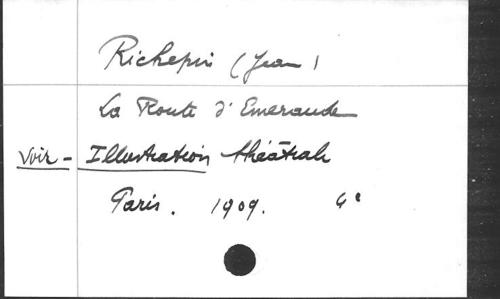 Richepin (Jean)
La Route d'Emeraude
Voir - Illustration théâtrale
Paris. 1909. 4°